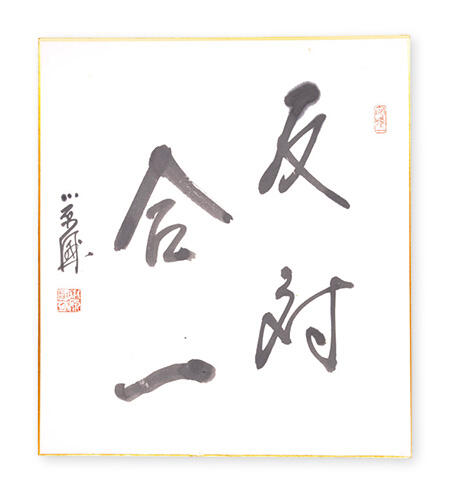 反対
合一